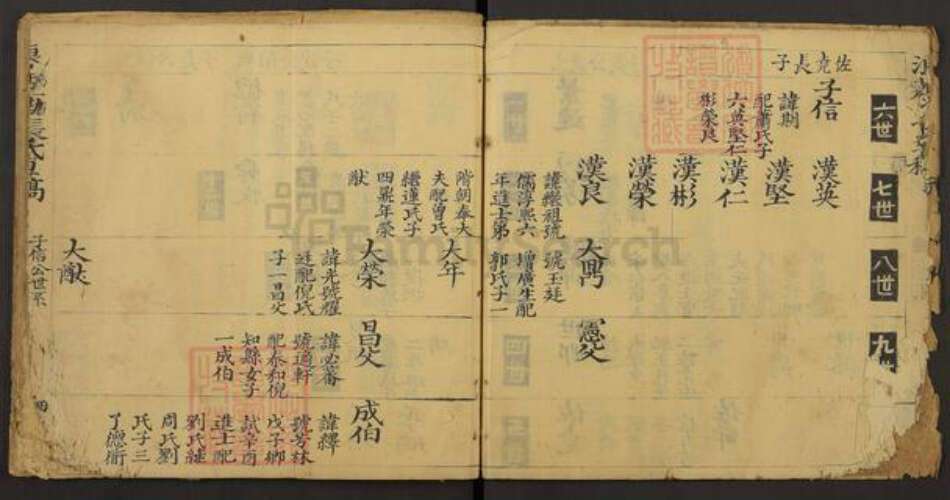 六世
七世
八世
九世
佐堯長子
子信
諱則
配蕭氏子
六英堅仁
彬榮良
漢英
漢堅
漢仁
漢彬
漢榮
漢良
諱繼祖號
儒淳熙六
年進士第
階朝奉大
夫配曾氏
繼蓮氏子
四鼎年榮
猷
大鼎
號玉廷
增廣生配
郭氏子一
憲父
大年
大榮
諱光號耀
廷配倪氏
子一昌父
昌父
諱必蕃
號適軒
配泰和倪
知縣女子
一成伯
成伯
諱繹
號芳林
戊子鄉
試辛酉
進士配
劉氏繼
周氏劉
氏子三
了德衛
大猷
子信公世系
FamilySearch